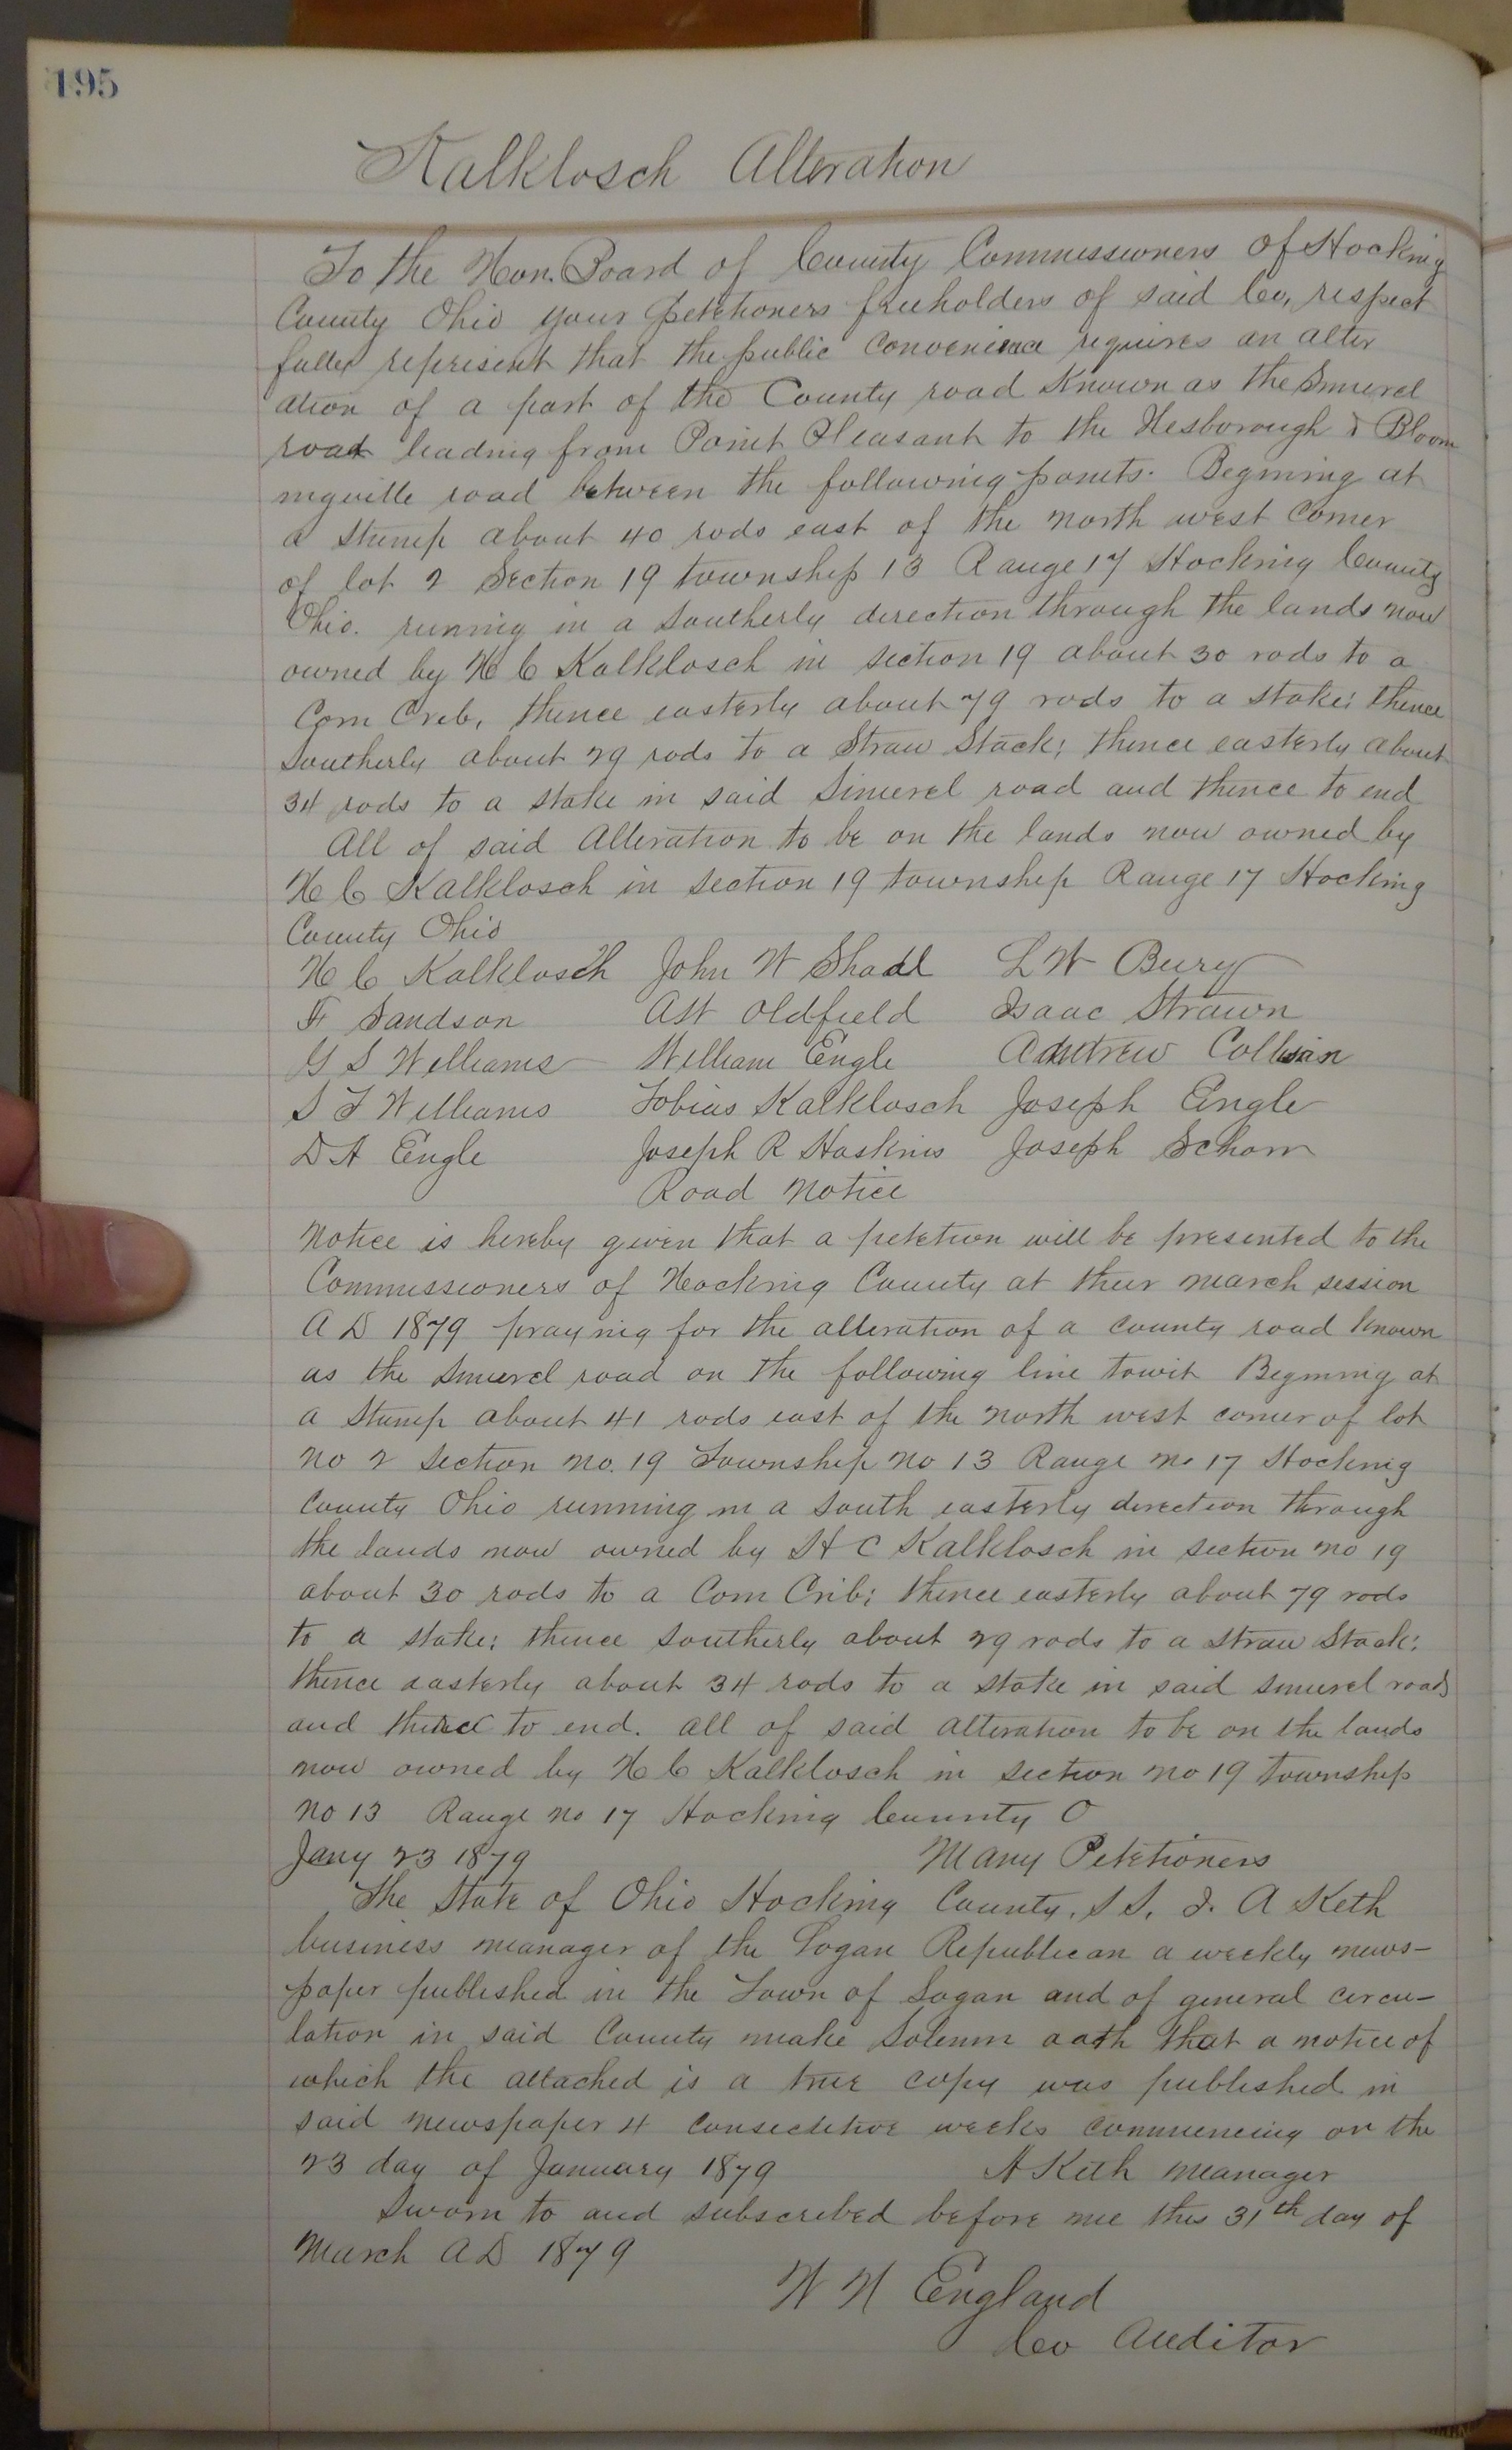 195
Kalklosch Alteration
To the Hon. Board of County Commissioners of Hocking
County Ohio your petetioners freeholders of said Co, respect
fully represent that the public convenience requires an alter
ation of a part of the County road known as the Simerel
road leading from Point Pleasant to the Nesborough & Bloom
ingville road between the following points. Begining at
a stump about 40 rods east of the north west corner
of lot 2 Section 19 township 13 Range 17 Hocking County
Ohio. running in a southerly direction through the lands now
owned by H C Kalklosch in section 19 about 30 rods to a
Corn Crib, thence easterly about 79 rods to a stake; thence
southerly about 29 rods to a Straw Stack; thence easterly about
34 rods to a stake in said Simerel road and thence to end
All of said Alteration to be on the lands now owned by
H C Kalklosch in section 19 township Range 17 Hocking
County Ohio
H C Kalklosch John W Shadl L W Bury
F Sandson A W Oldfield Isaac Strawn
G S Williams William Engle Andrew
S T Williams Tobias Kalklosch Joseph Engle
D A Engle Joseph R Haskins Joseph Schorr
Road Notice
Notice is hereby given that a petetion will be presented to the
Commissioners of Hocking County at their march session
A D 1879 praying for the alteration of a county road known
as the Simerel road on the following line towit Begining at
a Stump about 41 rods east of the north west corner of lot
No 2 Section No. 19 Township No 13 Range No 17 Hocking
County Ohio running in a south easterly direction through
the lands now owned by H C Kalklosch in section No 19
about 30 rods to a Corn Crib; thence easterly about 79 rods
to a stake; thence southerly about 29 rods to a straw stack;
thence easterly about 34 rods to a stake in said Simerel road
and thence to end. all of said alteration to be on the lands
now owned by H C Kalklosch in section No 19 township
No 13 Range No 17 Hocking County O
Jany 23 1879 Many Petetioners
The State of Ohio Hocking County, S S, I. A Keth
business manager of the Logan Republican a weekly news-
paper published in the Town of Logan and of general circu-
lation in said County make solemn oath that a notice of
which the attached is a true copy was published in
said newspaper 4 consecutive weeks commencing on the
23 day of January 1879 A Keth manager
Sworn to and subscribed before me this 31th day of
March A D 1879
W N England
Co Auditor